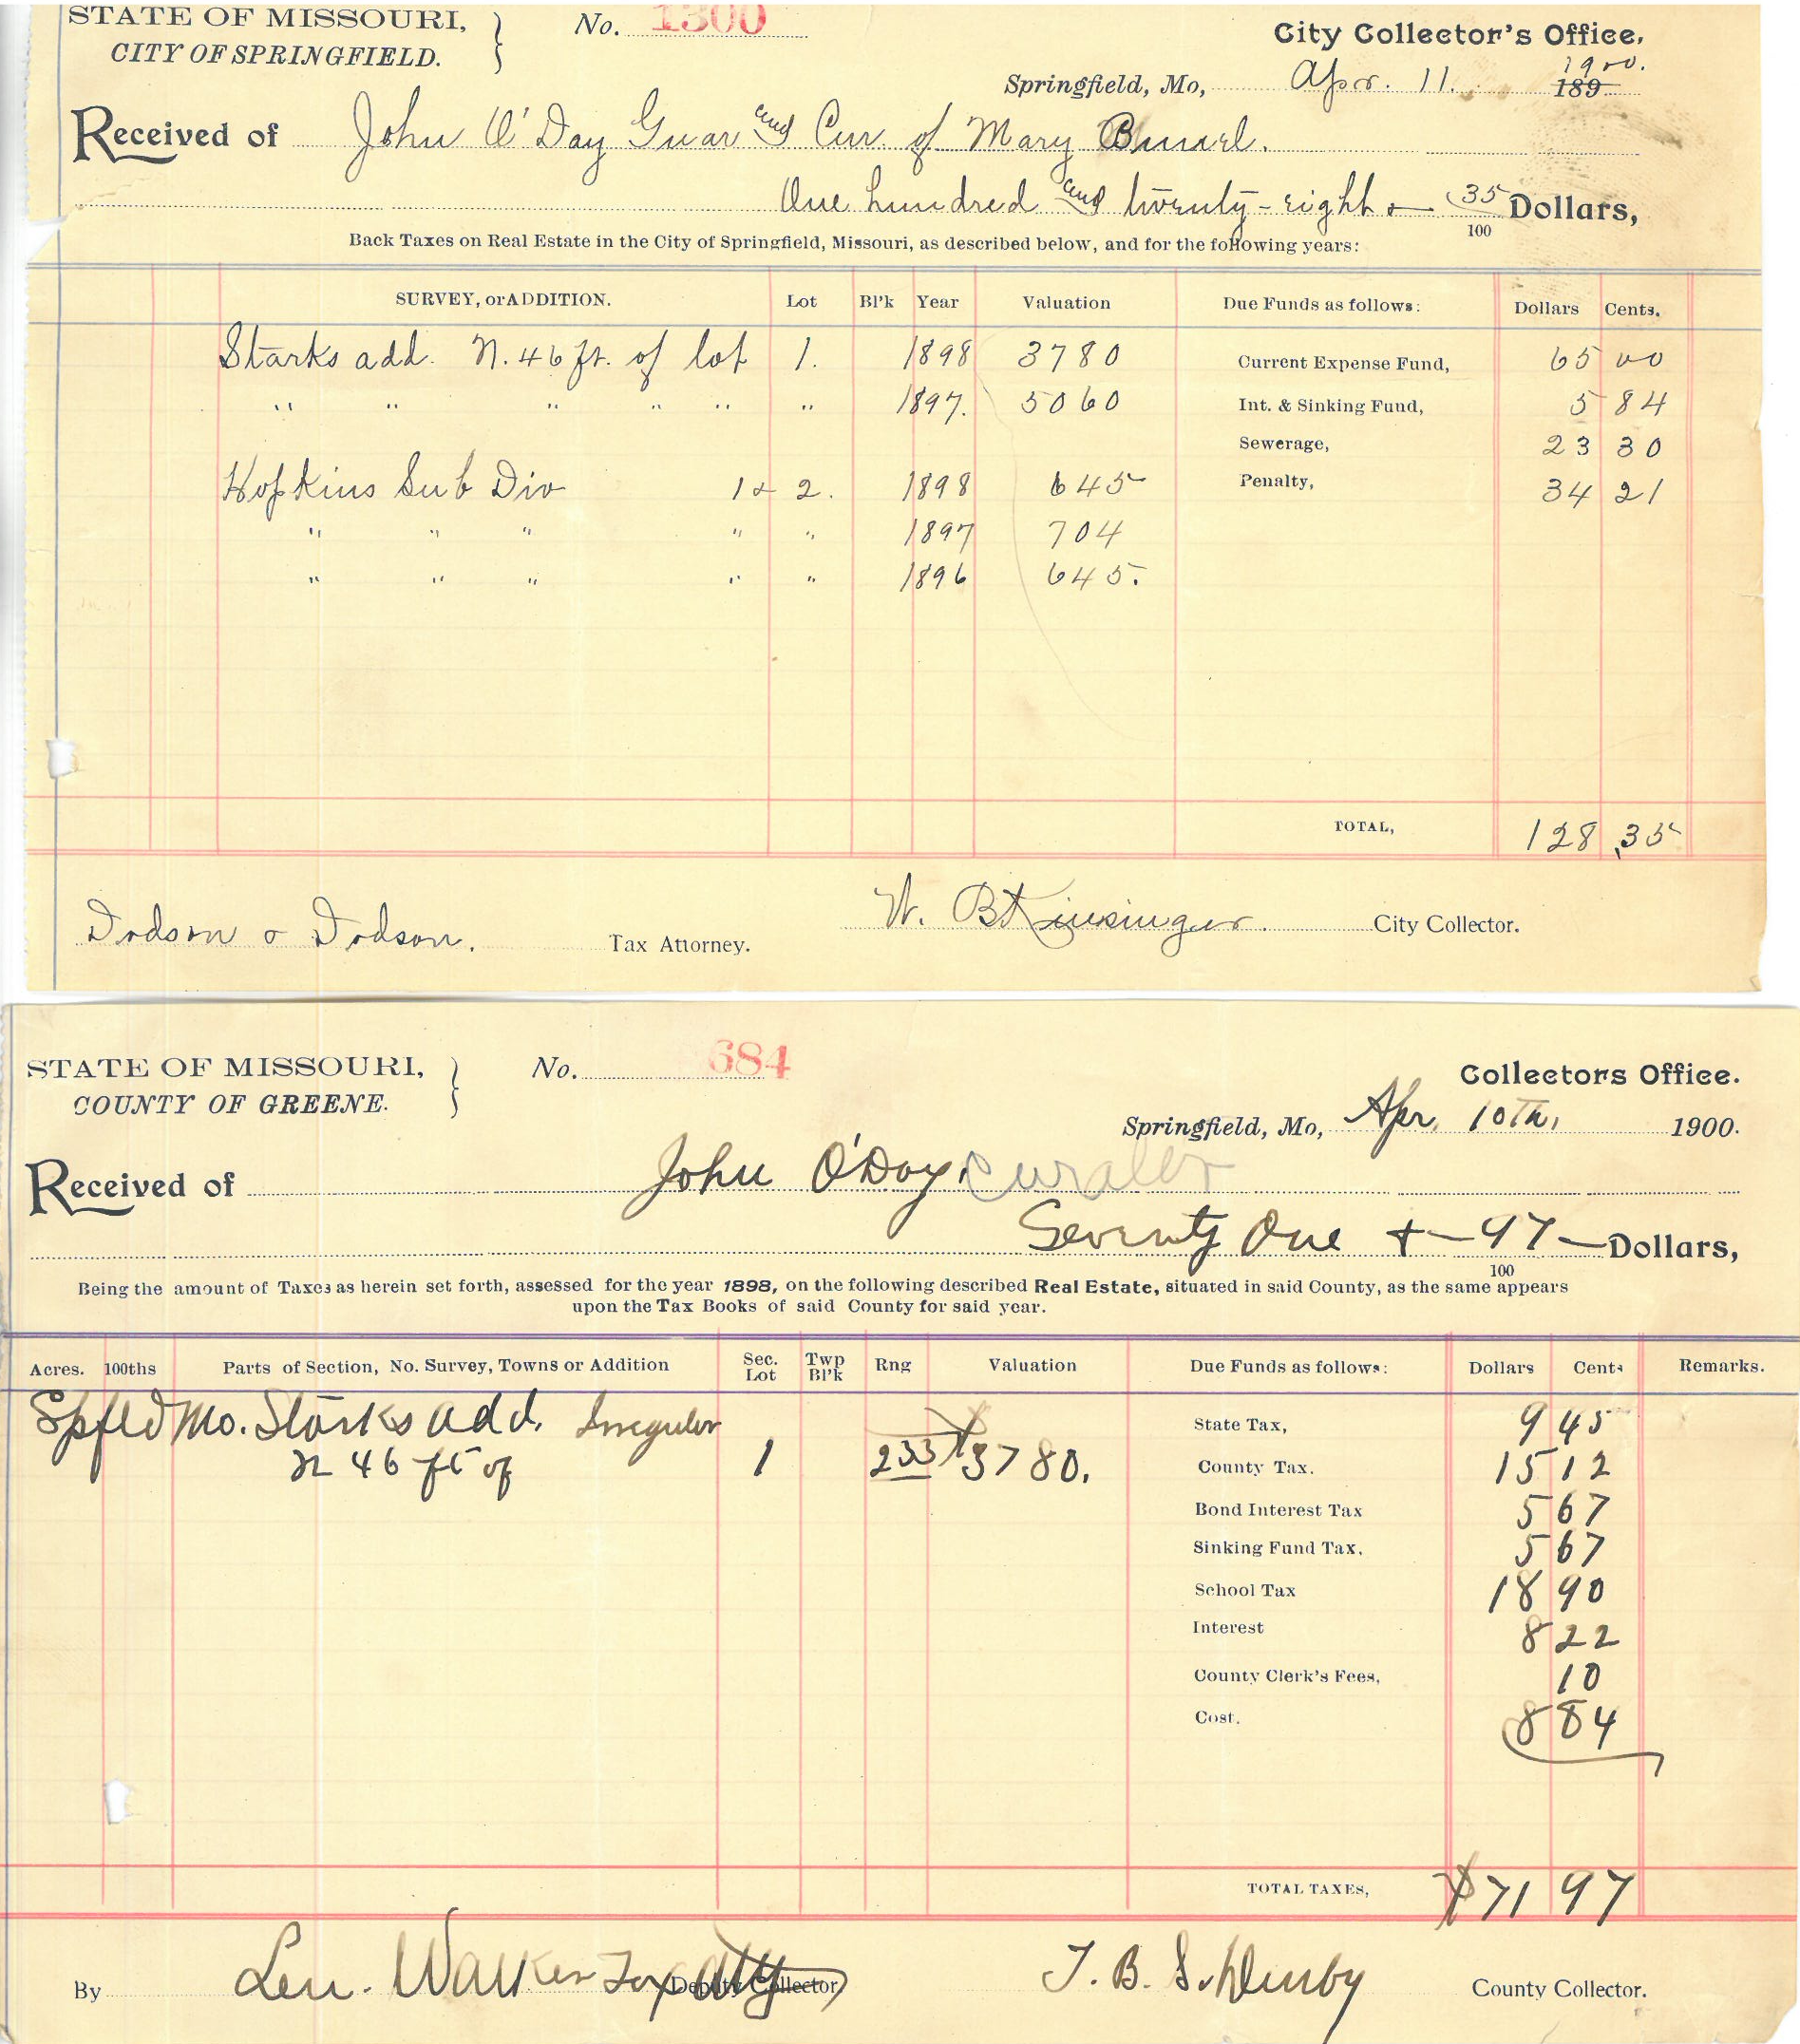 STATE OF MISSOURI,
CITY OF SPRINGFIELD.
No. 1300
City Collector's Office,
Springfield, Mo, Apr. 11. 189 1900.
Received of John O'Day Guar and Cur. of Mary
One hundred and twenty-eight 35/100 Dollars,
Back Taxes on Real Estate in the City of Springfield, Missouri, as described below, and for the following years:
SURVEY, or ADDITION. Lot Bl'k Year Valuation Due Funds as follows: Dollars Cents.
Starks add. N. 46 ft. of lot 1. 1898 3780 Current Expense Fund, 65 00
" " " " " " 1897. 5060 Int. & Sinking Fund, 5 84
Sewerage, 23 30
Hopkins Sub Div 1 & 2. 1898 645 Penalty, 34 21
" " " " " 1897 704
" " " " " 1896 645.
TOTAL, 128.35
Dodson & Dodson. Tax Attorney. W. B. Kinsinger. City Collector.
STATE OF MISSOURI,
COUNTY OF GREENE.
No. 684
Collectors Office.
Springfield, Mo, Apr. 10th, 1900.
Received of John O'Day, Curator
Seventy One + 97/100 Dollars,
Being the amount of Taxes as herein set forth, assessed for the year 1898, on the following described Real Estate, situated in said County, as the same appears
upon the Tax Books of said County for said year.
Acres. 100ths Parts of Section, No. Survey, Towns or Addition Sec. Lot Twp Bl'k Rng Valuation Due Funds as follows: Dollars Cents Remarks.
Spfld Mo. Starks add. Irregular State Tax, 9 45
N 46 ft of 1 233 $3780. County Tax. 15 12
Bond Interest Tax 5 67
Sinking Fund Tax, 5 67
School Tax 18 90
Interest 8 22
County Clerk's Fees, 10
Cost. 8 84
TOTAL TAXES, $71 97
By Len. Walker Tax Atty Deputy Collector T. B. County Collector.